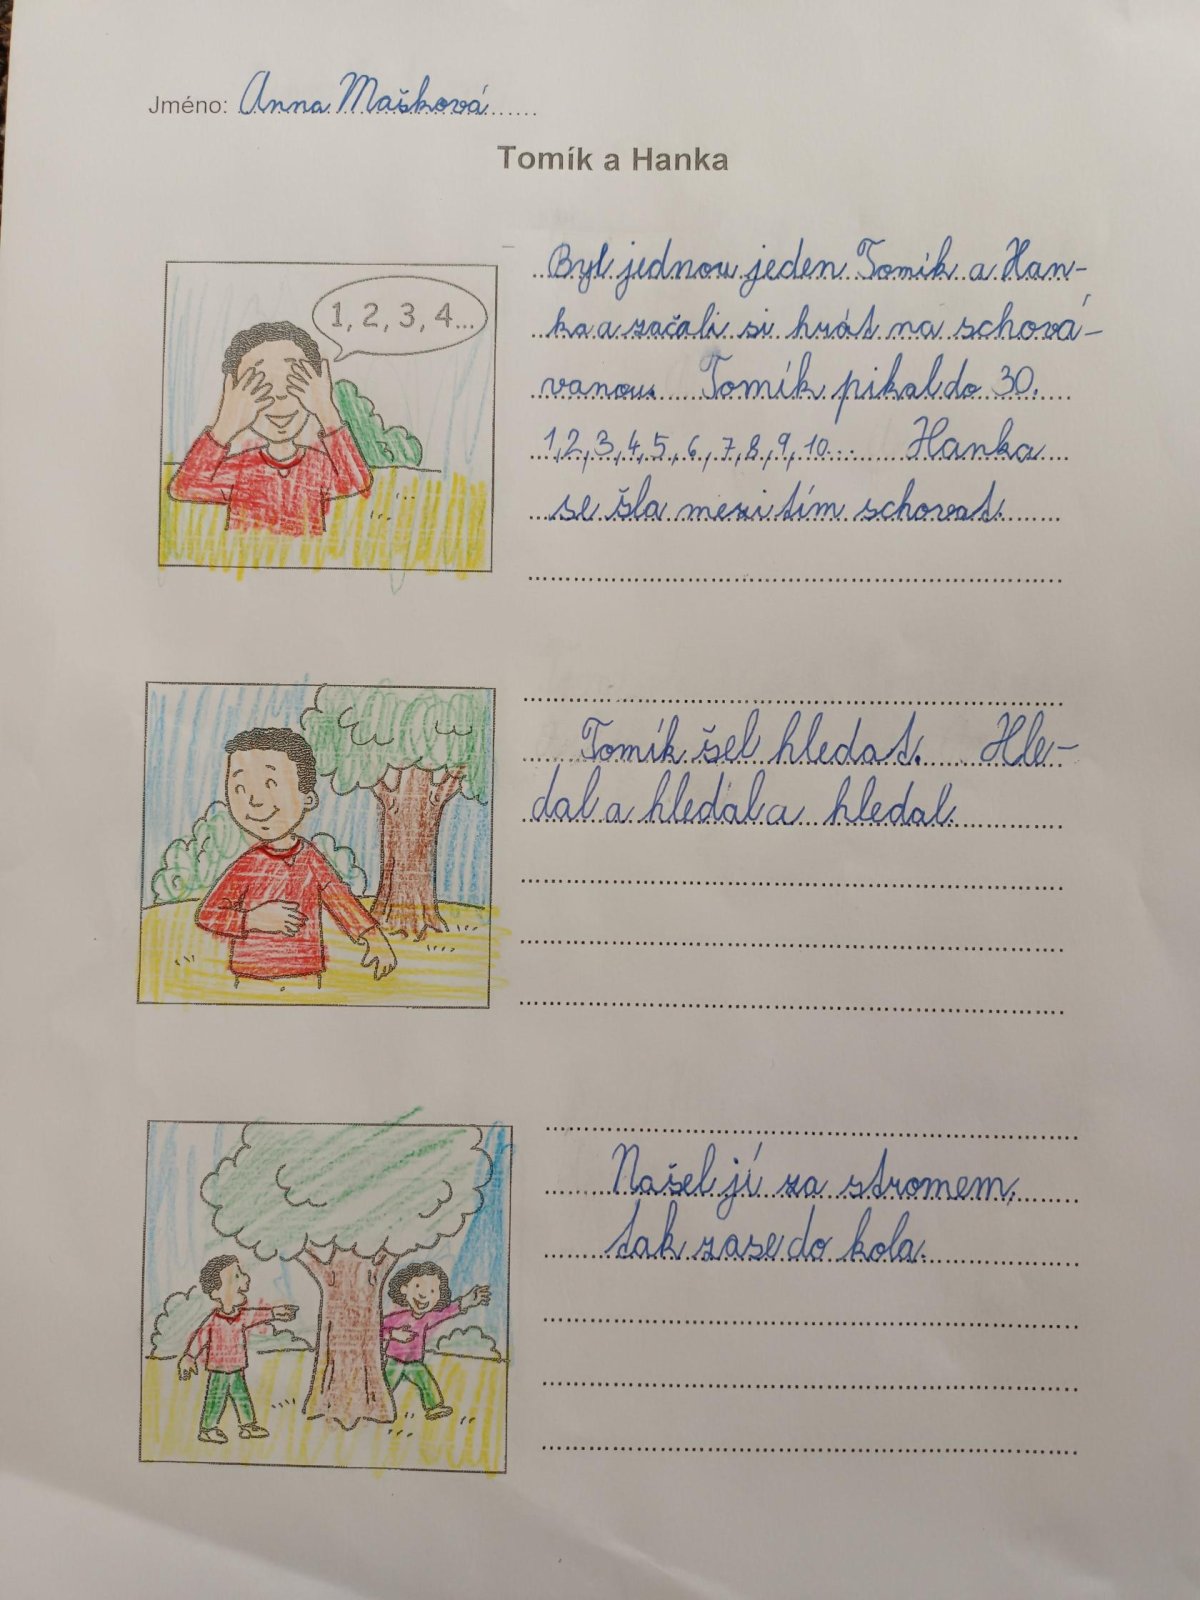 Jméno: Anna Mašková
Tomík a Hanka
1, 2, 3, 4...
Byl jednou jeden Tomík a Han-
ka a začali si hrát na schová-
vanou. Tomík pikal do 30.
1,2,3,4,5,6,7,8,9,10... Hanka
se šla mezitím schovat.
Tomík šel hledat. Hle-
dal a hledal a hledal.
Našel jí za stromem,
tak zase do kola.